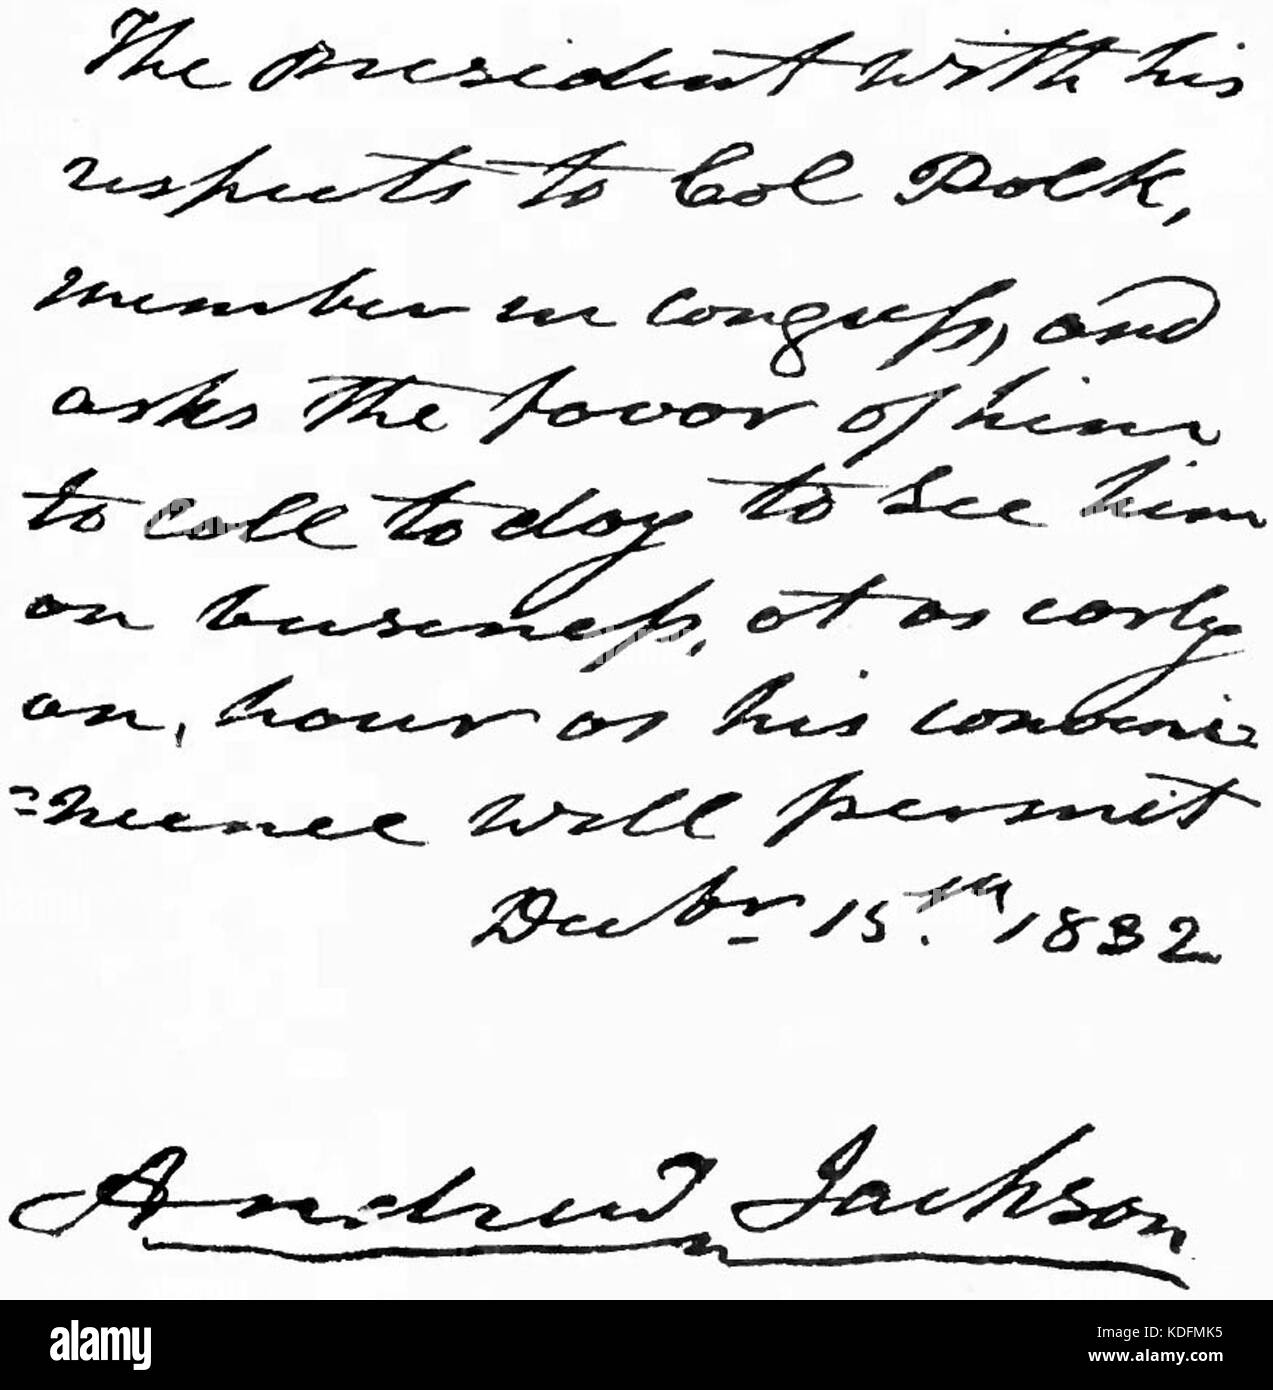 The president with his
respects to Col Polk,
member in congress, and
asks the favor of him
to call to day to see him
on business, at as early
an, hour as his conveni=
=nence will permit
Decbr 15.th 1832
Andrew Jackson
alamy
Image ID: KDFMK5
www.alamy.com